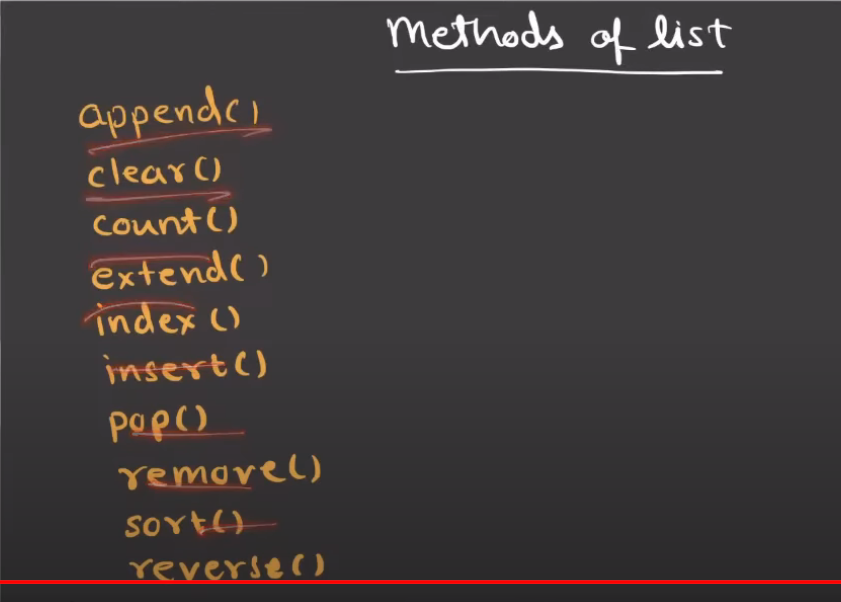 Methods of list
append()
clear()
count()
extend()
index()
insert()
pop()
remove()
sort()
reverse()